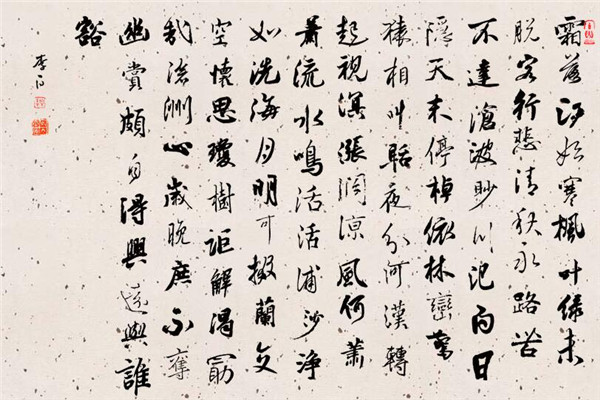 霜落江始寒楓叶綠未
脱客行悲清秋永路苦
不達滄波眇川汜白日
隱天末停棹依林巒驚
猿相叫聒夜分河漢轉
起視溟漲闊涼風何蕭
蕭流水鳴活活浦沙淨
如洗海月明可掇蘭交
空懷思瓊樹詎解渴勗
哉滄洲心歲晚庶不奪
幽賞頗自得興遠與誰
豁
李